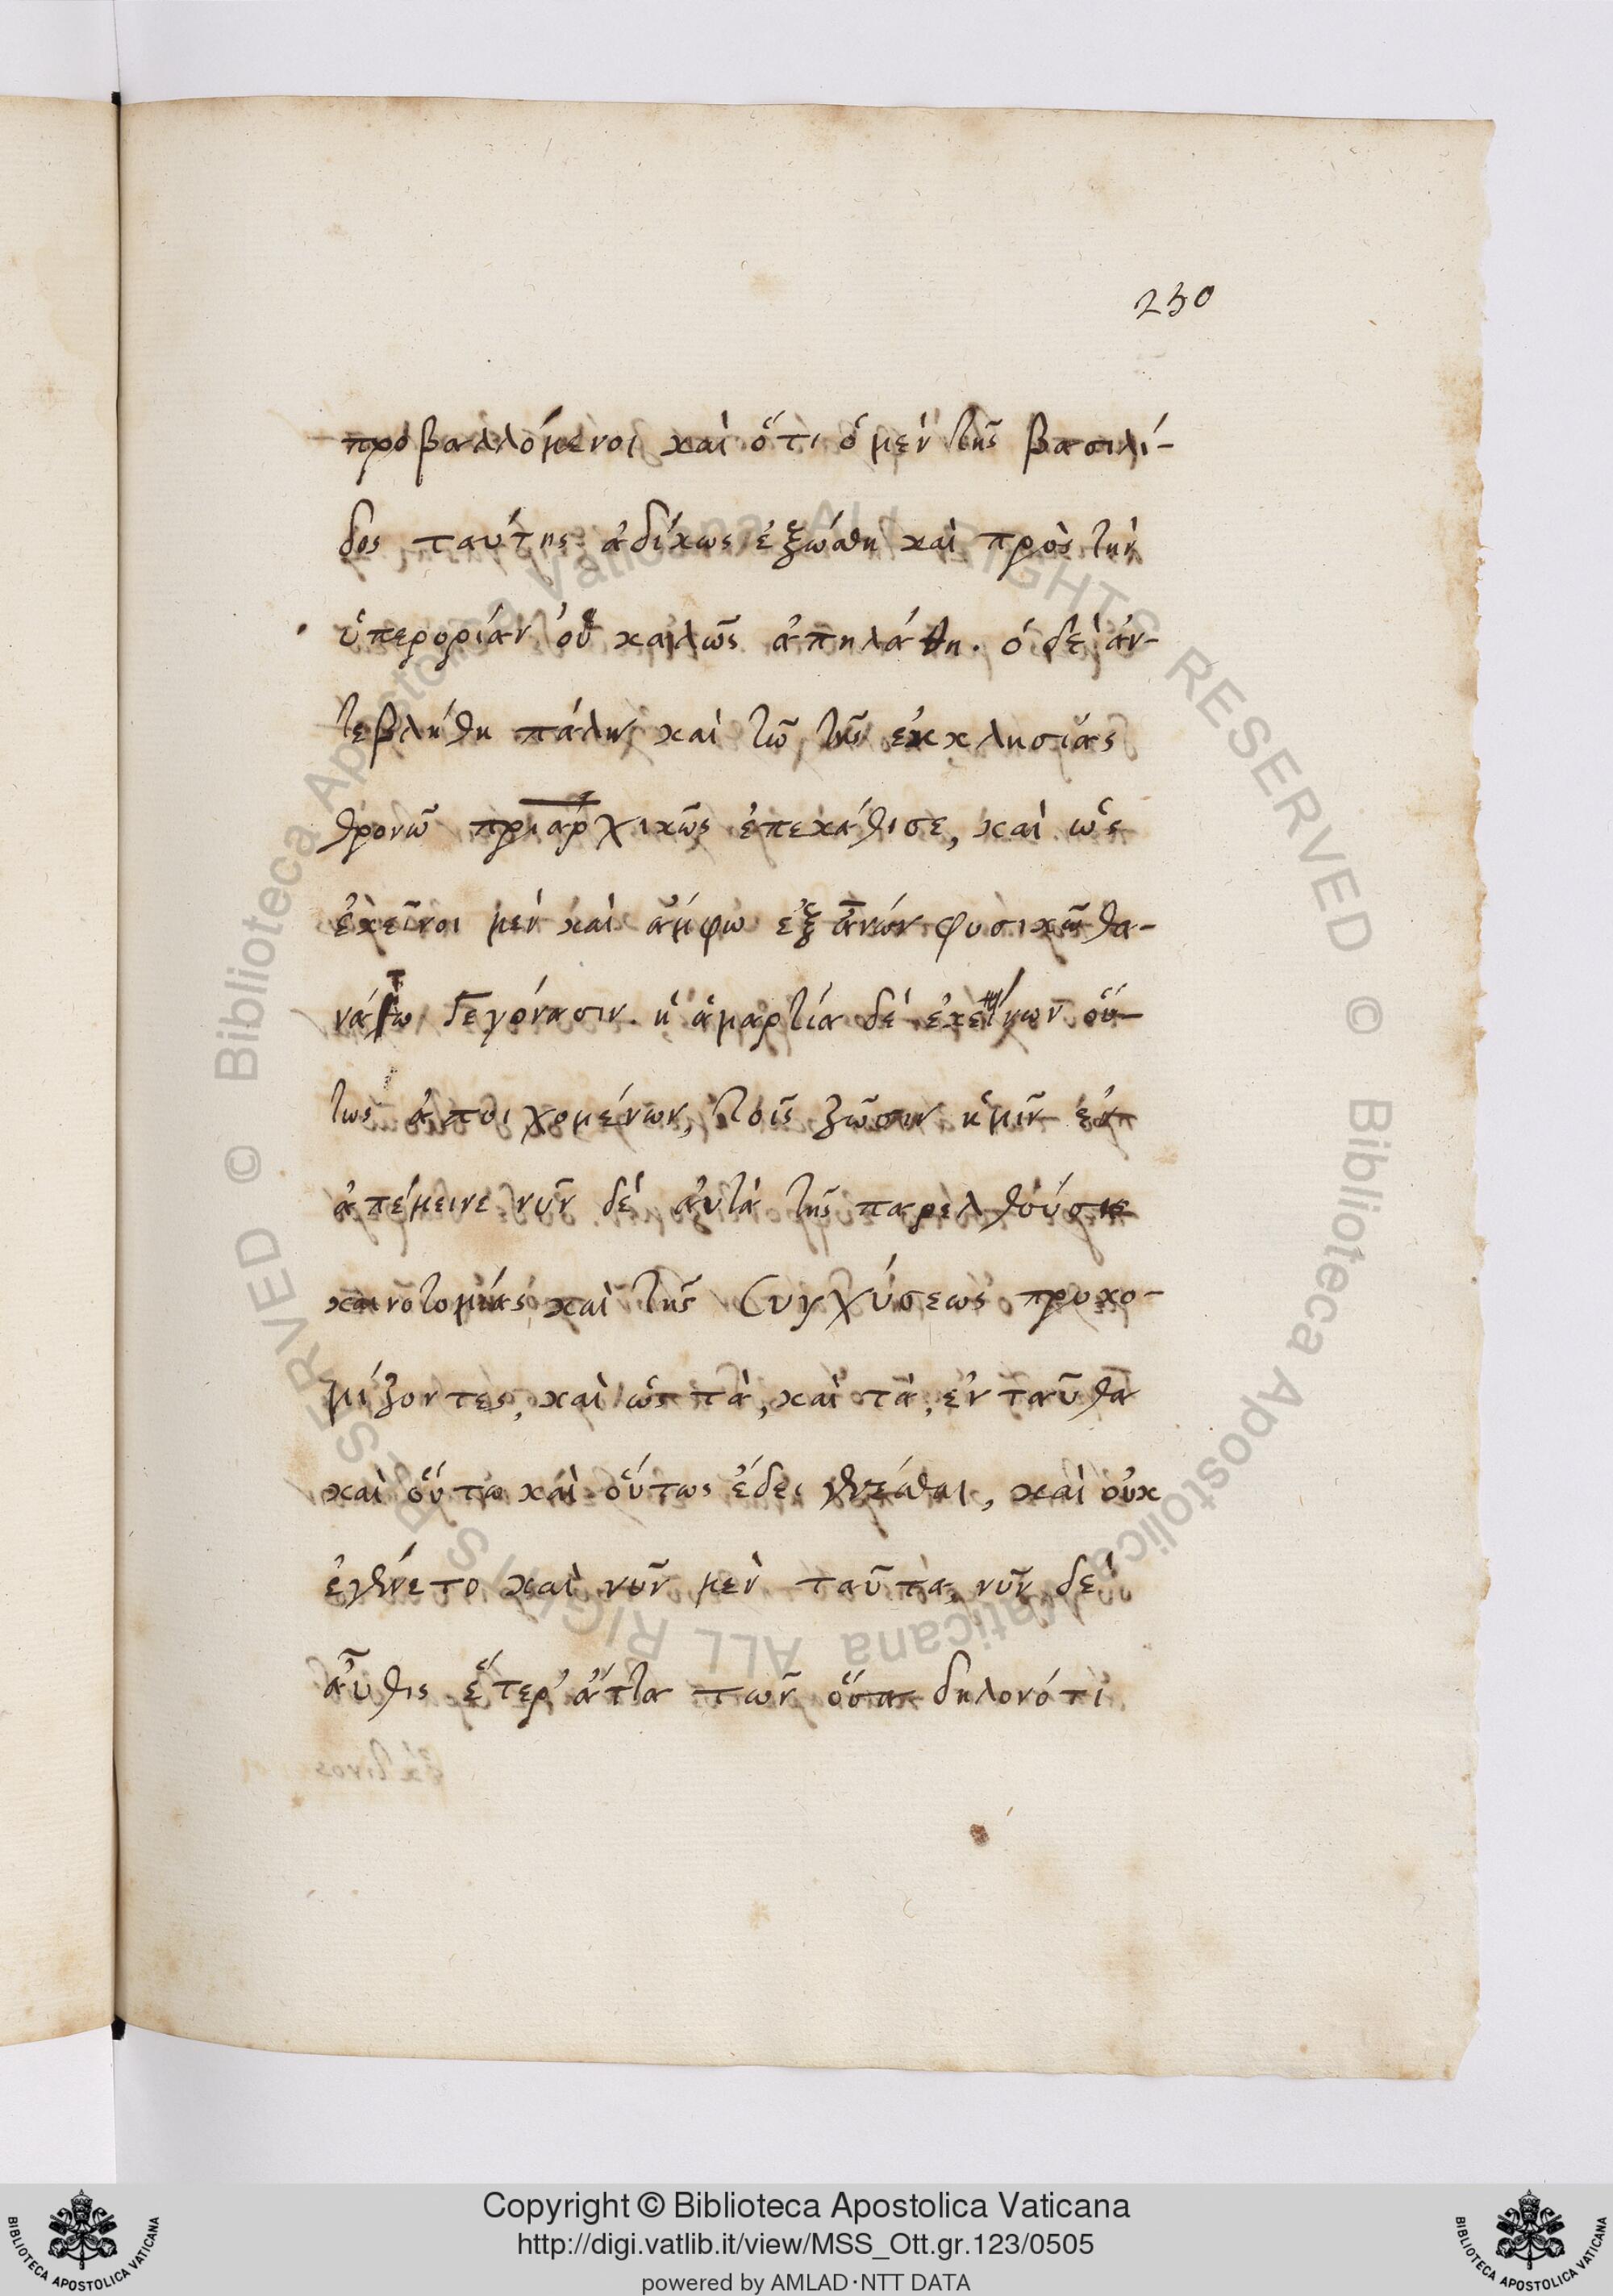 230
προβαλλόμενοι καὶ ὅτι ὁ μὲν τῆς βασιλί-
δος ταύτης ἀδίκως ἐξώσθη καὶ πρὸς τὴν
ὑπερορίαν οὐ καλῶς ἀπηλάθη. ὁ δὲ ἀν-
τεβλήθη πάλιν καὶ τῶ τῆς ἐκκλησίας
θρονῶ πριαρχικῶς ἐπεκάθισε, καὶ ὡς
ἐκεῖνοι μὲν καὶ ἄμφω ἐξ ἀνών φυσικῶ θα-
νάτω γεγόνασιν. ἡ ἁμαρτία δὲ ἐκείνων οὕ-
τως ἀποιχομένων, τοῖς ζῶσιν ἡμῖν
ἀπέμεινε νῦν δὲ αὐτὰ τῆς παρελθούσης
καινοτομίας καὶ τῆς συγχύσεως προκο-
μίζοντες, καὶ ὡς τὰ, καὶ τὰ, ἐνταῦθα
καὶ οὕτω καὶ οὕτως ἔδει γενέσθαι, καὶ οὐκ
ἐγένετο καὶ νῦν μὲν ταῦτα, νῦν δὲ
αὖθις ἕτερ' ἄττα τῶν ὅσα δηλονότι
Copyright © Biblioteca Apostolica Vaticana
http://digi.vatlib.it/view/MSS_Ott.gr.123/0505
powered by AMLAD·NTT DATA
BIBLIOTECA APOSTOLICA VATICANA
BIBLIOTECA APOSTOLICA VATICANA
© Biblioteca Apostolica Vaticana ALL RIGHTS RESERVED © Biblioteca Apostolica Vaticana ALL RIGHTS RESERVED